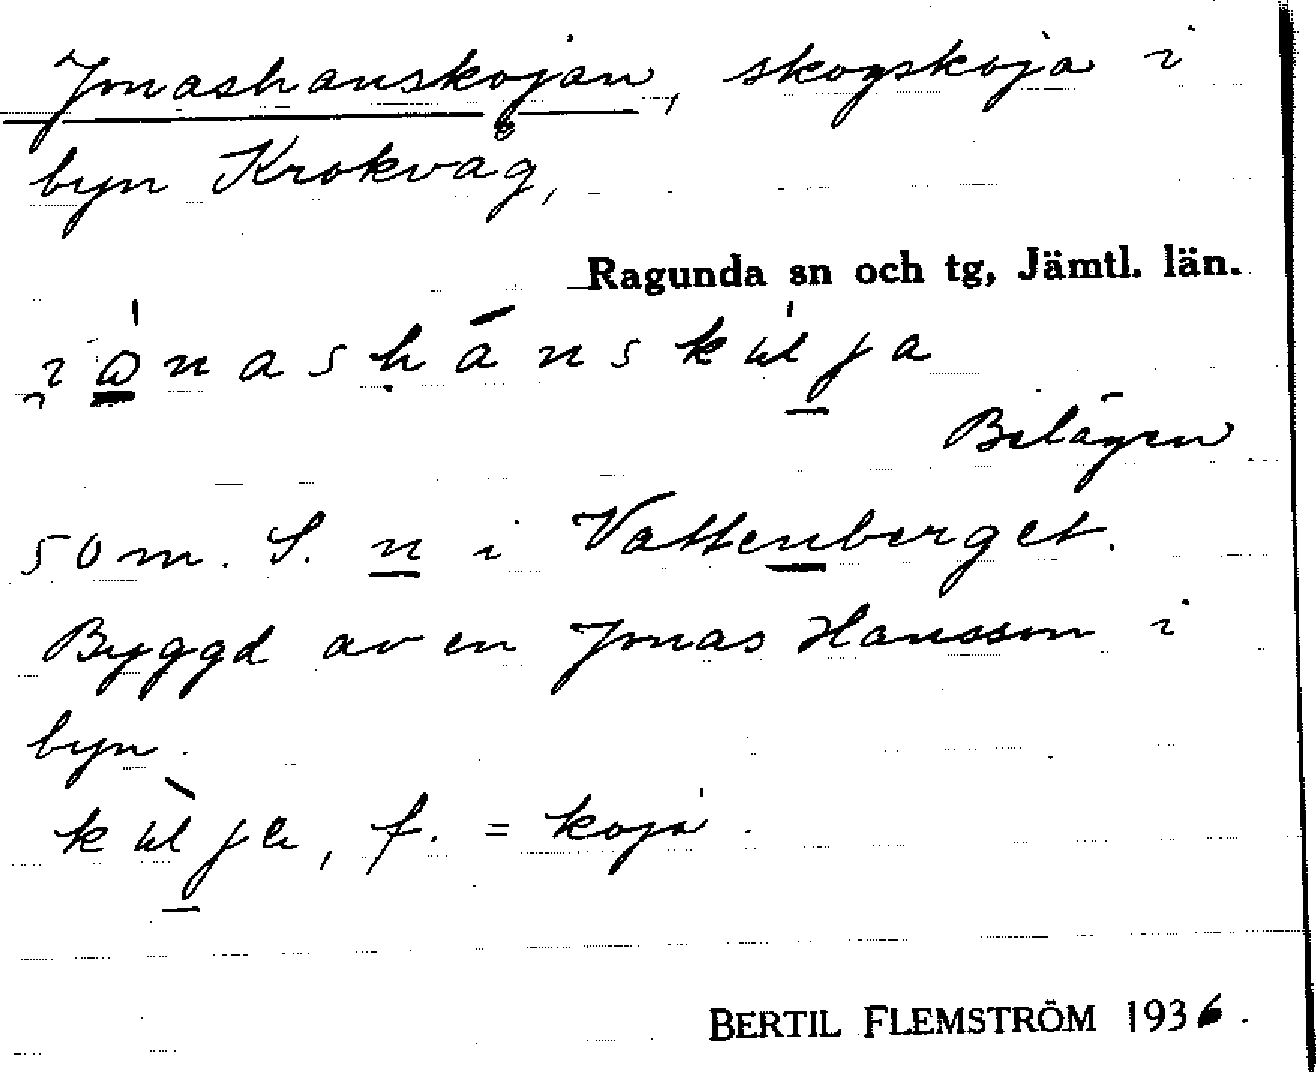 Jonashanskojan, skogskoja i
byn Krokvåg,
Ragunda sn och tg, Jämtl. län.
Belägen
50 m. S. n i Vattenberget.
Byggd av en Jonas Hansson i
byn.
f. = koja.
BERTIL FLEMSTRÖM 1936.